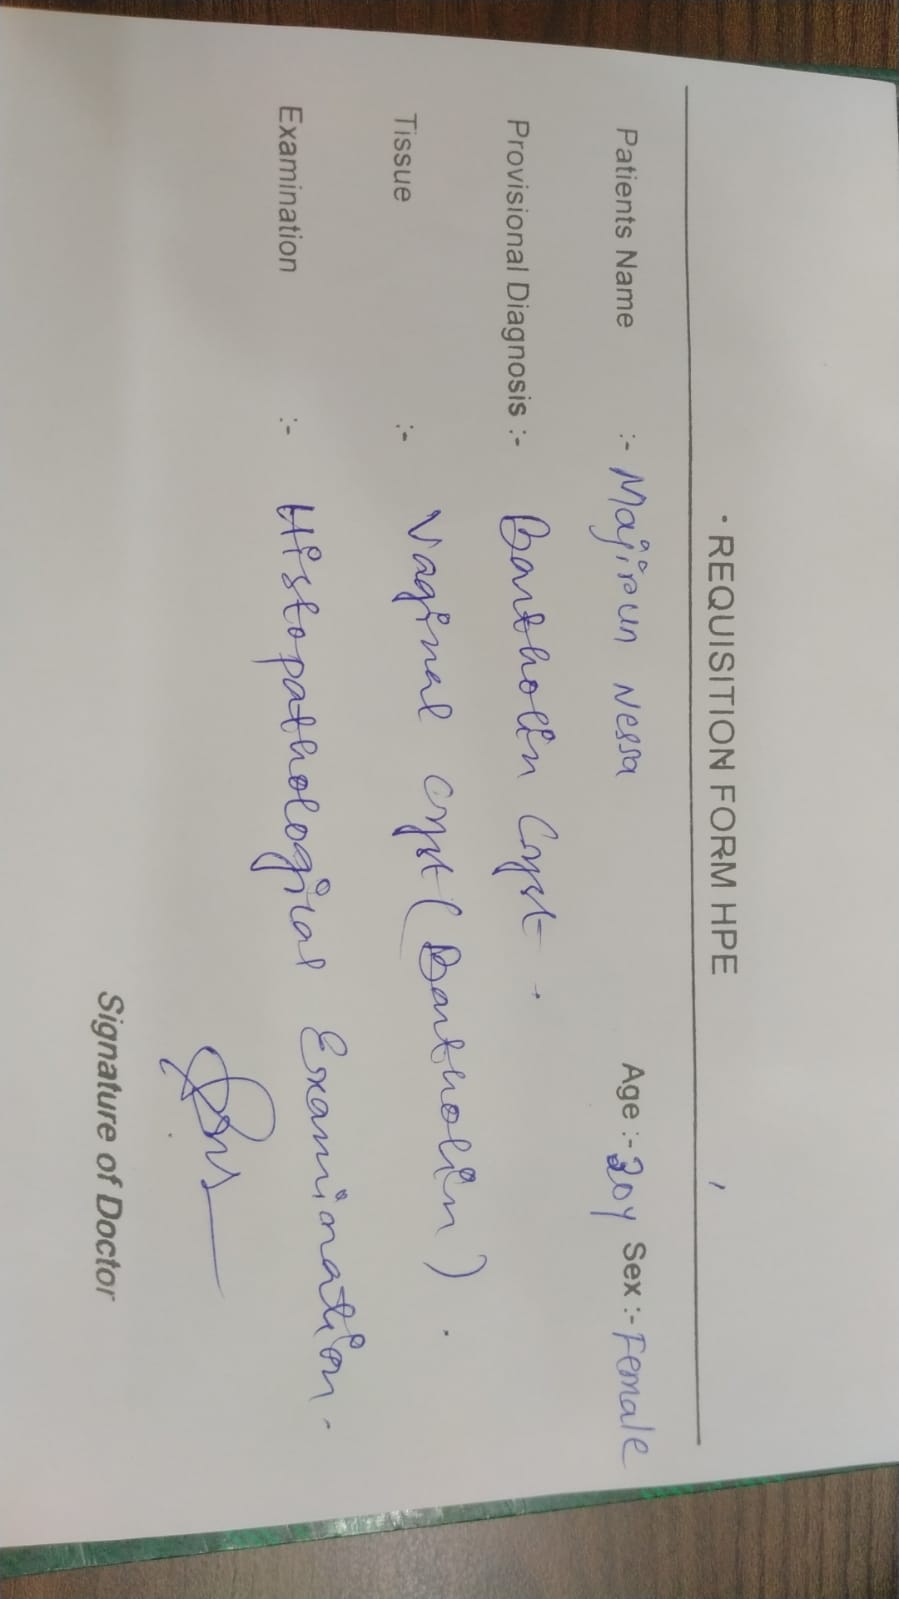 REQUISITION FORM HPE
Patients Name :- Majirun Nessa Age :- 20y Sex :- Female
Provisional Diagnosis :- Bartholin Cyst.
Tissue :- Vaginal Cyst (Bartholin).
Examination :- Histopathological Examination.
Signature of Doctor